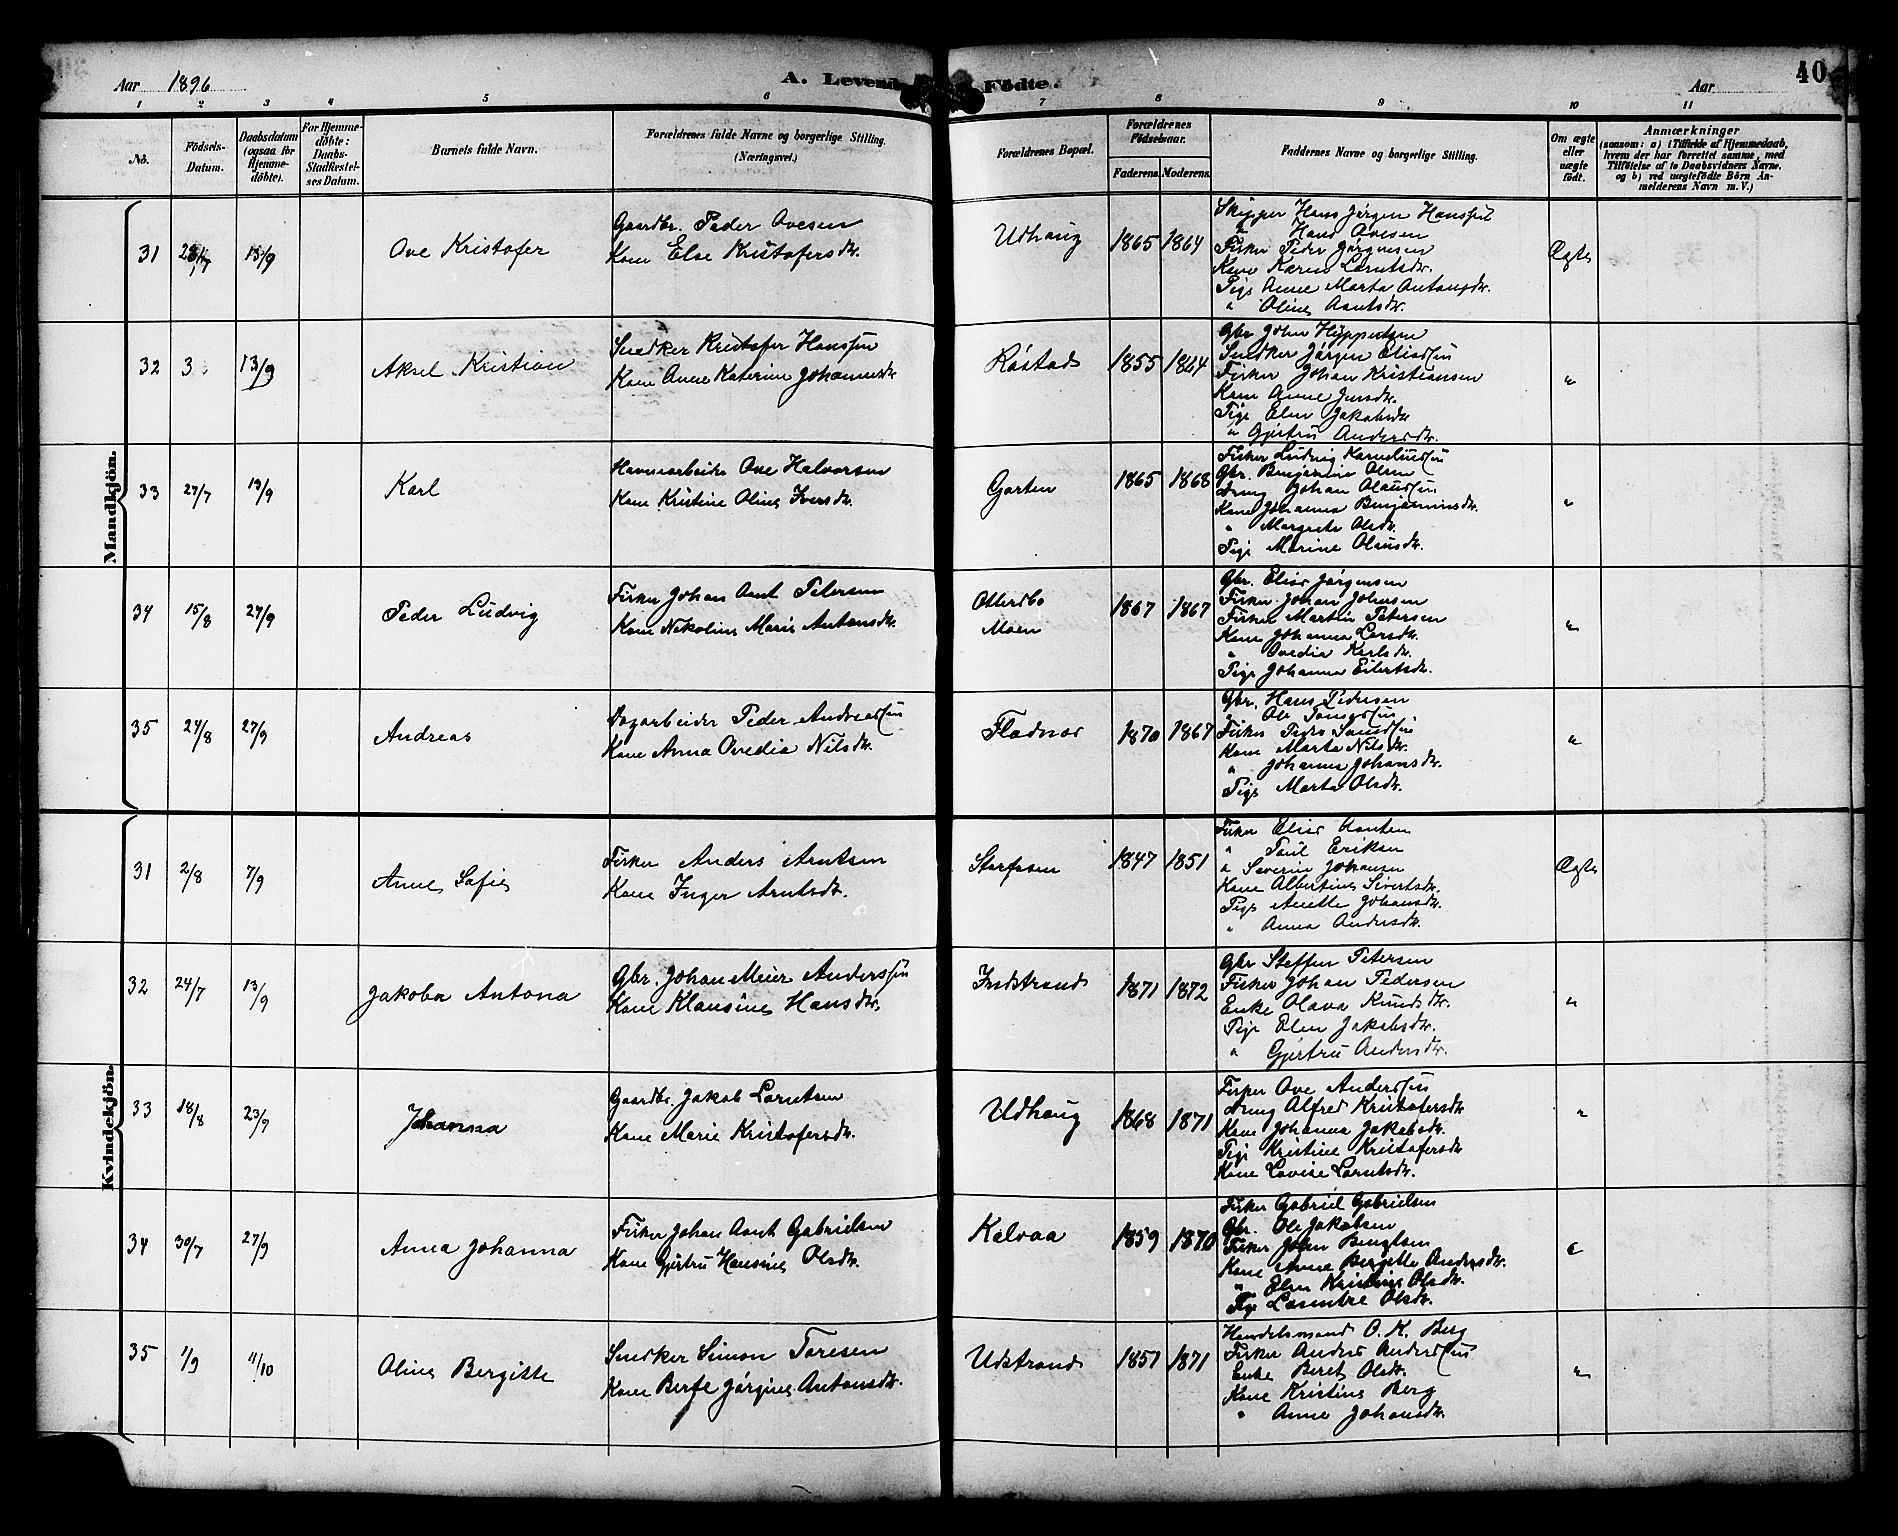 Aar 1896
A. Levende Födte.
Aar
40
1 2 3 4 5 6 7 8 9 10 11
No.
Födsels-
Datum.
Daabsdatum
(ogsaa for
Hjemme-
döbte).
For Hjemme-
döbte:
Daabs-
Stadfæstel-
ses Datum.
Barnets fulde Navn.
Forældrenes fulde Navne og borgerlige Stilling.
(Næringsvei.)
Forældrenes Bopæl.
Forældrenes
Födselsaar.
Faderens. Moderens.
Faddernes Navne og borgerlige Stilling.
Om ægte
eller
uægte
födt.
Anmærkninger
(saasom: a) i Tilfælde af Hjemmedaab,
hvem der har forrettet samme, med
Tilföielse af to Daabsvidners Navne,
og b) ved uægtefödte Börn An-
melderens Navn m. V.)
Mandkjön.
31 13/9 Ove Kristofer
Gaardbr. Peder Ovesen
Kone Else Kristofersdtr.
Udhaug 1865 1864
Skipper Hans Jørgen Hanssen
" Hans Ovesen
Fisker Peder Jørgensen
Kone Karen Lorntsdtr.
Pige Anne Marta Antonsdtr.
" Oline Arntsdtr.
Ægte
32 3 13/9 Aksel Kristian
Snedker Kristofer Hanssen
Kone Anne Katerine Johannesdtr
Røstad 1855 1864
Gbr John
Snedker Jørgen Eliassen
Fisker Johan Kristiansen
Kone Anne Jensdtr.
Pige Elen Jakobsdtr
" Gjertru Andersdtr.
"
33 27/7 13/9 Karl
Havnearbeider Ove Halvorsen
Kone Kristine Oline Iversdtr.
Garten 1865 1868
Fisker Ludvig Korneliussen
Gbr. Benjamin Olsen
Dreng Johan Olaussen
Kone Johanna Benjaminsdtr.
" Margrete Olsdtr.
Pige Marine Olausdtr.
"
34 15/8 27/9 Peder Ludvig
Fisker Johan Arnt Petersen
Kone Nikoline Marie Antonsdtr.
Ottersbo
Moen
1867 1867
Gbr. Elias Jørgensen
Fisker Johan Johnsen
Fisker Martin Petersen
Kone Johanna Larsdtr.
" Ovedia Karlsdtr.
Pige Johanna Eilertsdtr.
"
35 24/8 27/9 Andreas
Dagarbeider Peder Andreassen
Kone Anna Ovedia Nilsdtr.
Fladnes 1870 1867
Gbr. Hans Pedersen
" Ole
Fisker Peder
Kone Marta Nilsdtr.
" Johanna Johansdtr.
Pige Marta Olsdtr.
"
Kvindekjön.
31 2/8 7/9 Anne Sofie
Fisker Anders Arntsen
Kone Inger Arntsdtr.
Storfosen 1847 1851
Fisker Elias
" Paul Eriksen
" Severin Johansen
Kone Albertine Sivertsdtr.
Pige Anette Johansdtr.
" Anna Andersdtr.
Ægte
32 24/7 13/9 Jakoba Antona
Gbr. Johan Meier Anderssen
Kone Klausine Hansdtr.
Indstrand 1871 1872
Gbr Steffen Petersen
Fisker Johan Pedersen
Enke Olava Knudsdtr.
Pige Elen Jakobsdtr.
" Gjertru Andersdtr.
"
33 18/8 23/9 Johanna
Gaardbr. Jakob Lorntsen
Kone Marie Kristofersdtr.
Udhaug 1868 1871
Fisker Ove Anderssen
Dreng Alfred Kristofersdtr
Kone Johanna Jakobsdtr.
Pige Kristine Kristofersdtr
Kone Lovise Lorntsdtr.
"
34 30/7 27/9 Anna Johanna
Fisker Johan Arnt Gabrielsen
Kone Gjertru Hansine Olsdtr.
Kalvaa 1859 1870
Fisker Gabriel Gabrielsen
Gbr. Ole Jakobsen
Fisker John Bengtsen
Kone Anne Bergitte Andersdtr.
" Elen Kristine Olsdtr.
Pige Olsdtr.
"
35 1/9 11/10 Oline Bergitte
Snedker Simon Toresen
Kone Berte Jørgine Antonsdtr.
Udstrand 1851 1871
Handelsmand O. K. Berg
Fisker Anders Anderssen
Enke Beret Olsdtr.
Kone Kristine Berg
" Anne Johansdtr.
"